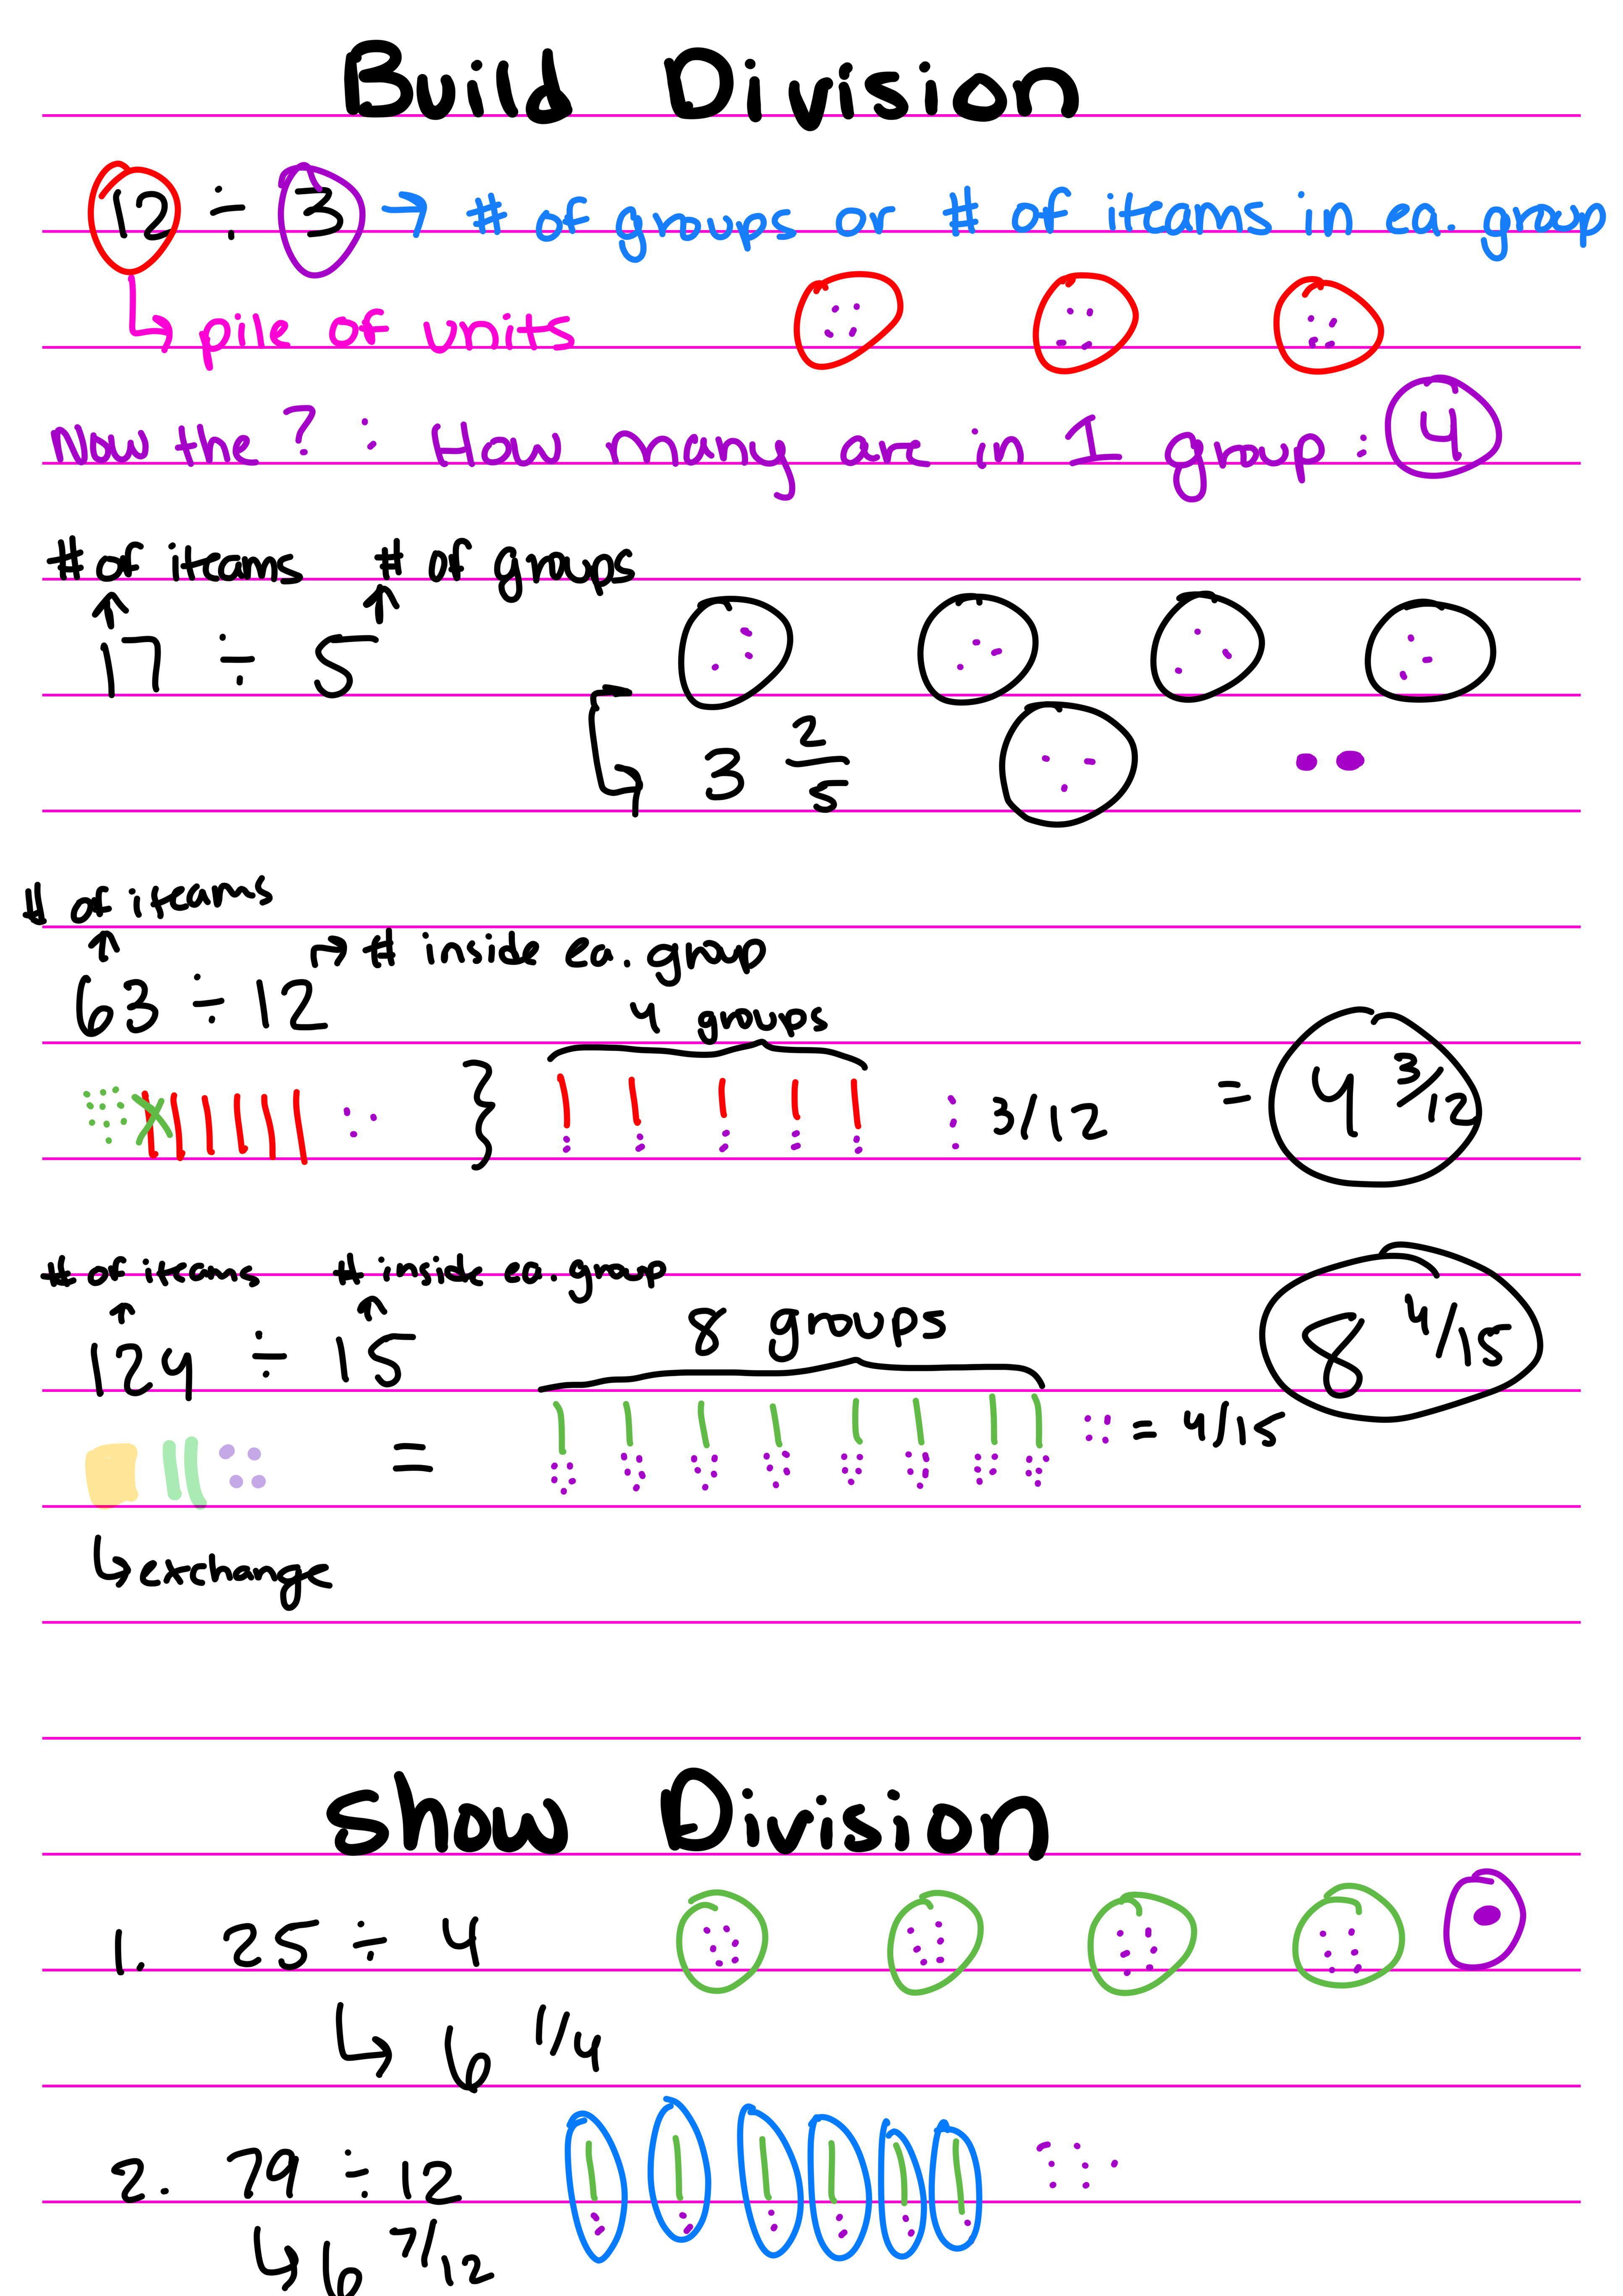 Build Division
12 ÷ 3 → # of groups or # of iteams in ea. group
↳ pile of units
Now the ? : How many are in 1 group : 4
# of iteams # of groups
17 ÷ 5
3 2/5
# of iteams
# inside ea. group
63 ÷ 12
4 groups
3/12 = 4 3/12
# of iteams # inside ea. group
124 ÷ 15
8 groups
8 4/15
= = 4/15
↳ exchange
Show Division
1. 25 ÷ 4
↳ 6 1/4
2. 79 ÷ 12
↳ 6 7/12